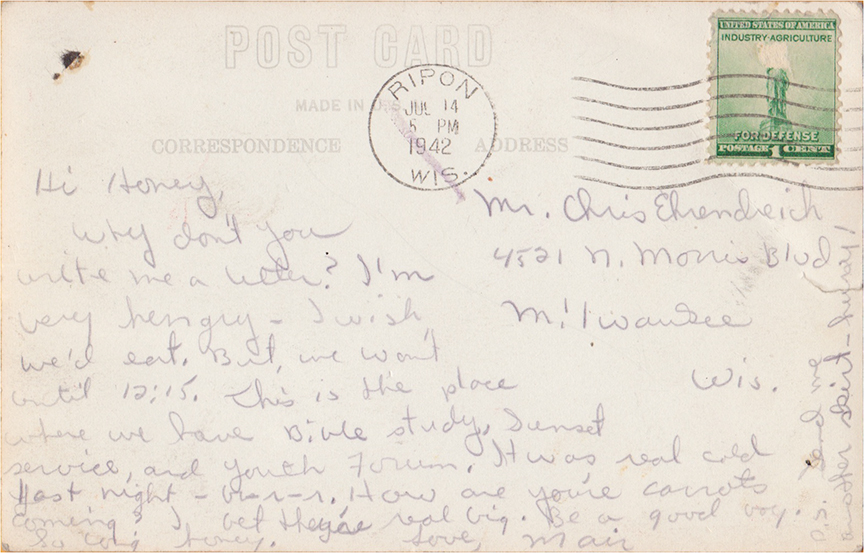 POST CARD
MADE IN U.S.
CORRESPONDENCE
ADDRESS
RIPON
JUL 14
5 PM
1942
WIS.
UNITED STATES OF AMERICA
INDUSTRY·AGRICULTURE
FOR DEFENSE
POSTAGE 1 CENT
Hi Honey,
Why don't you
write me a letter? I'm
very hengry - I wish
we'd eat. But, we won't
until 12:15. This is the place
where we have Bible study, Sunset
service, and Youth Forum. It was real cold
last night - br-r-r. How are you're carrots
coming? I bet they're real big. Be a good boy.
So long honey. Love,
Mr. Chris Ehrendreich
4521 N. Morris Blvd
Milwaukee
Wis.
send me
another skirt - hurry!